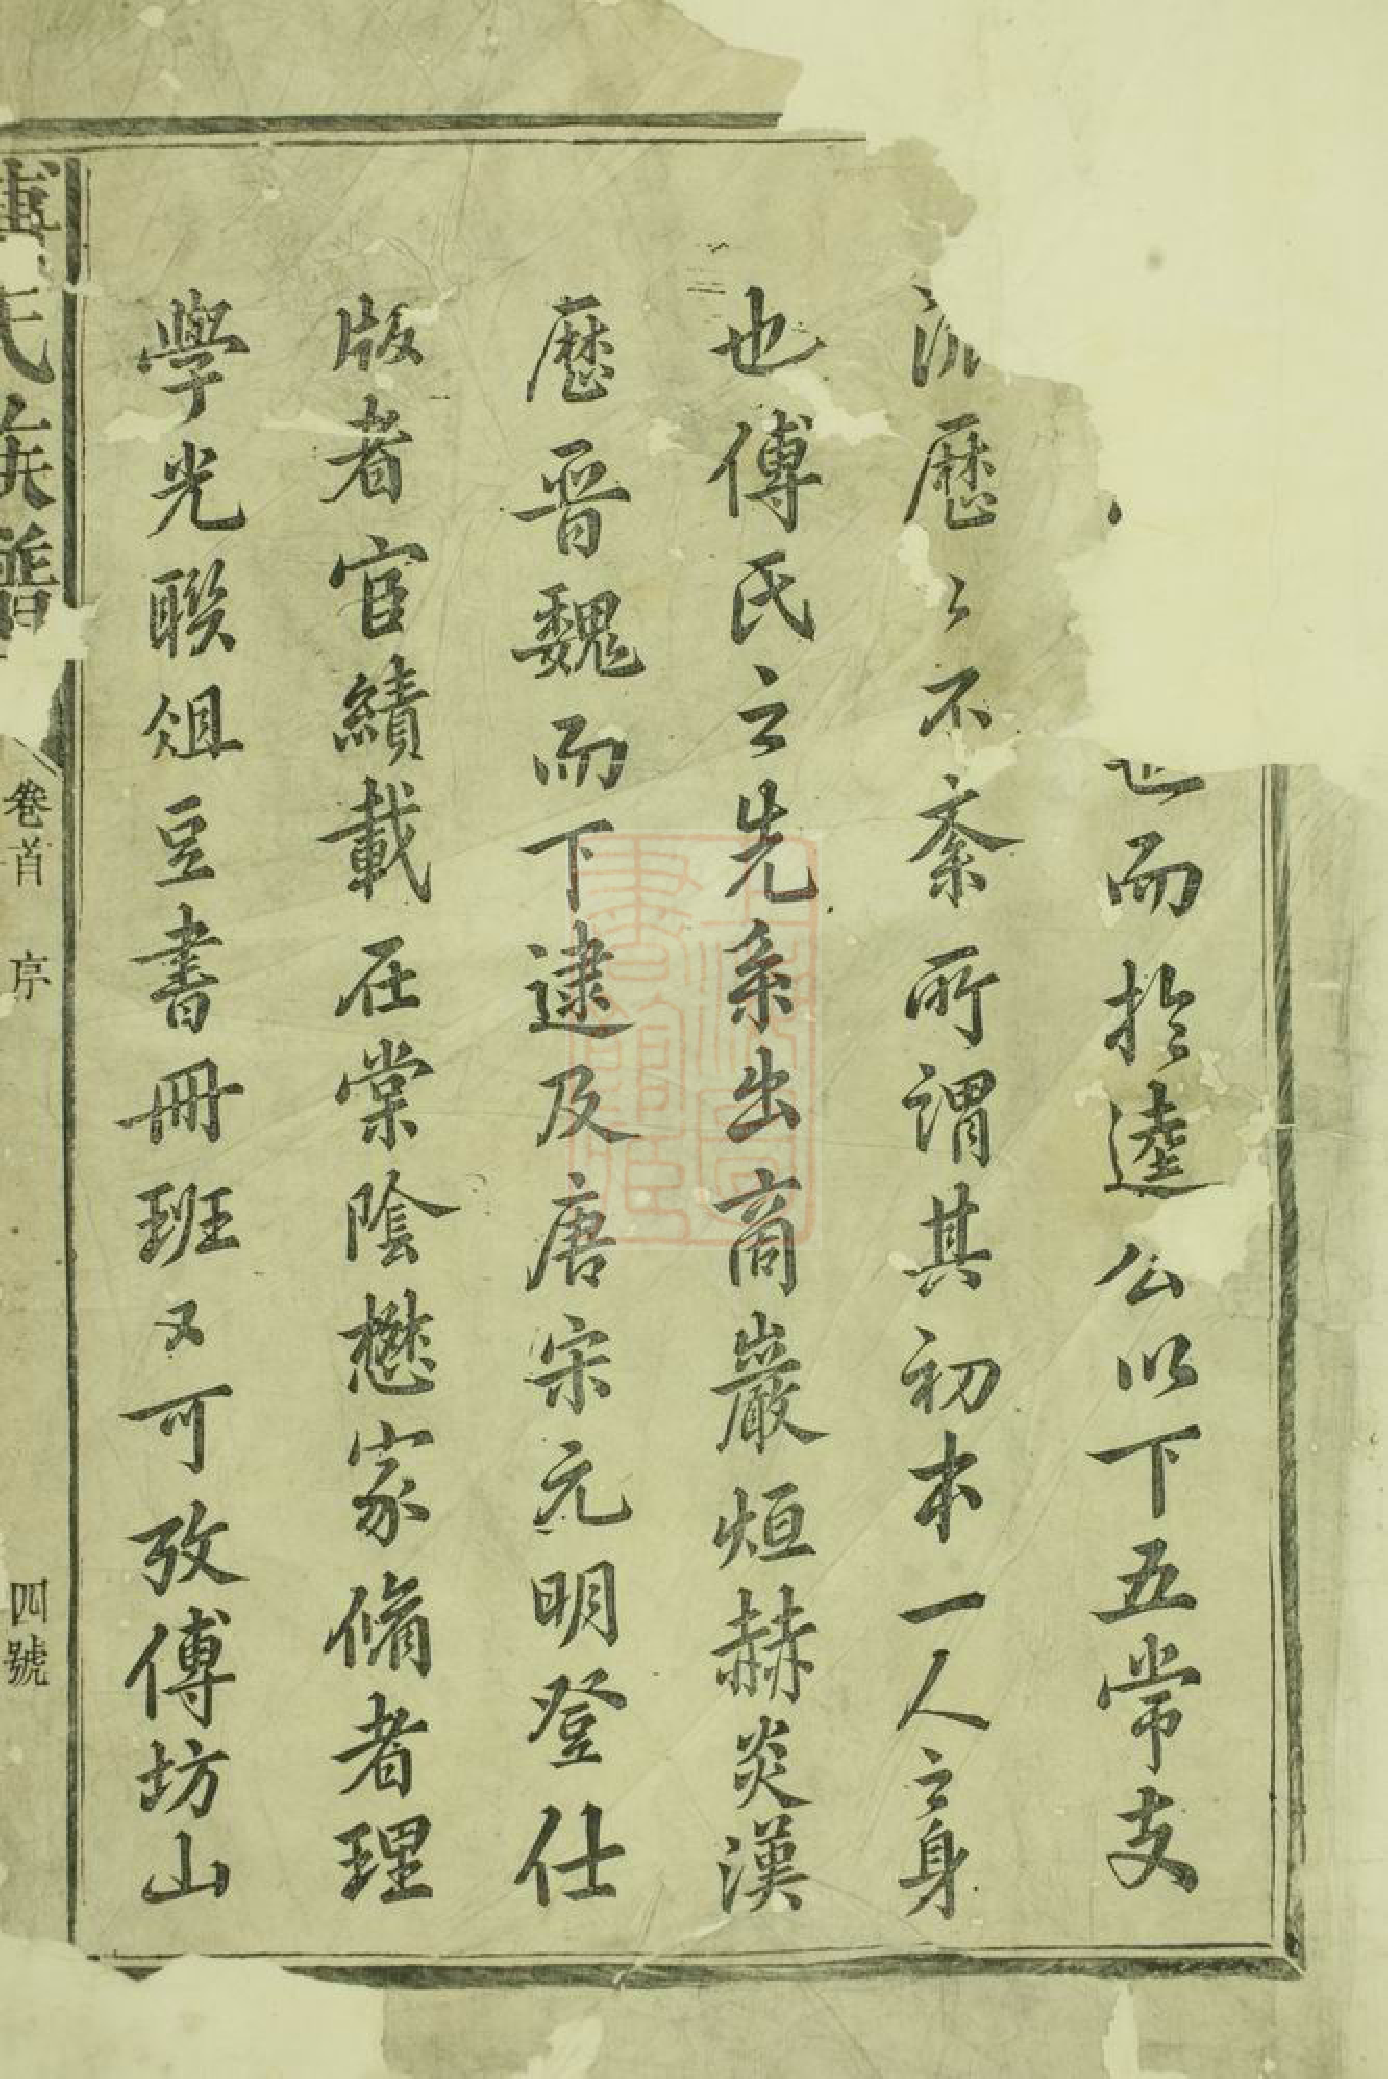 而於逵公以下五常支
歷〻不紊所謂其初本一人之身
也傅氏之先系出商巖烜赫炎漢
歷晉魏而下逮及唐宋元明登仕
版者官績載在棠陰懋家脩者理
學光聯俎豆書冊班又可攷傅坊山
氏族譜
卷首 序
四號